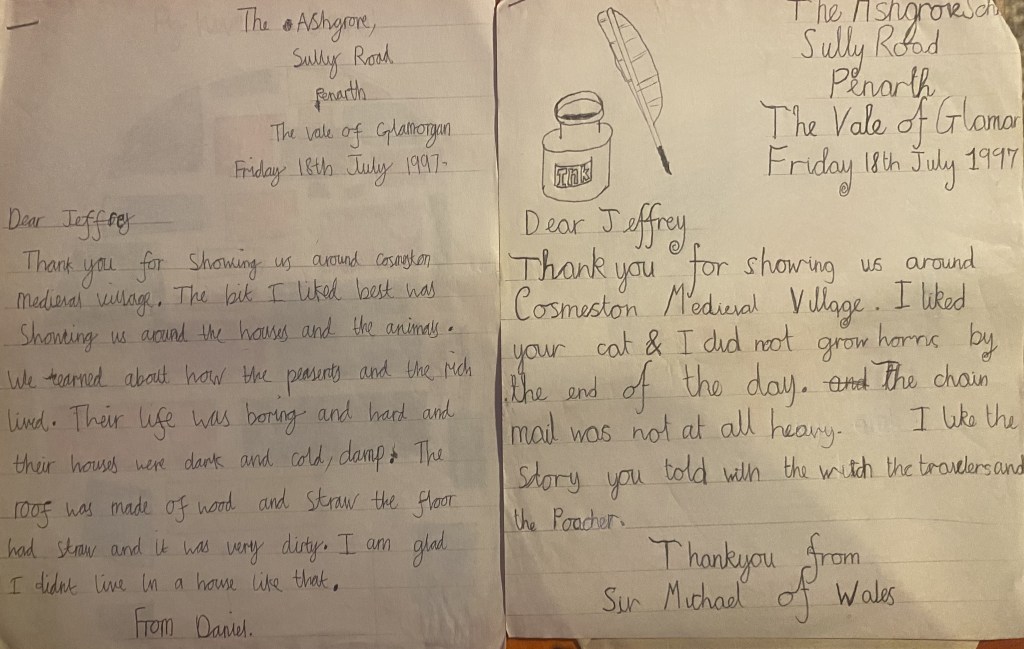 The Ashgrove,
Sully Road
Penarth
The vale of Glamorgan
Friday 18th July 1997.
Dear Jeffrey
Thank you for Showing us around cosmeston
medieval village. The bit I liked best was
Showing us around the houses and the animals.
We learned about how the pesents and the rich
lived. Their life was boring and hard and
their houses were dark and cold, damp. The
roof was made of wood and straw the floor
had straw and it was very dirty. I am glad
I didnt live in a house like that.
From Daniel.
The Ashgrove Sch
Sully Road
Penarth
The Vale of Glamor
Friday 18th July 1997
Ink
Dear Jeffrey
Thank you for showing us around
Cosmeston Medieval Village. I liked
your cat & I did not grow horns by
the end of the day. and The chain
mail was not at all heavy. I like the
story you told with the witch the travelers and
the Poacher.
Thankyou from
Sir Michael of Wales